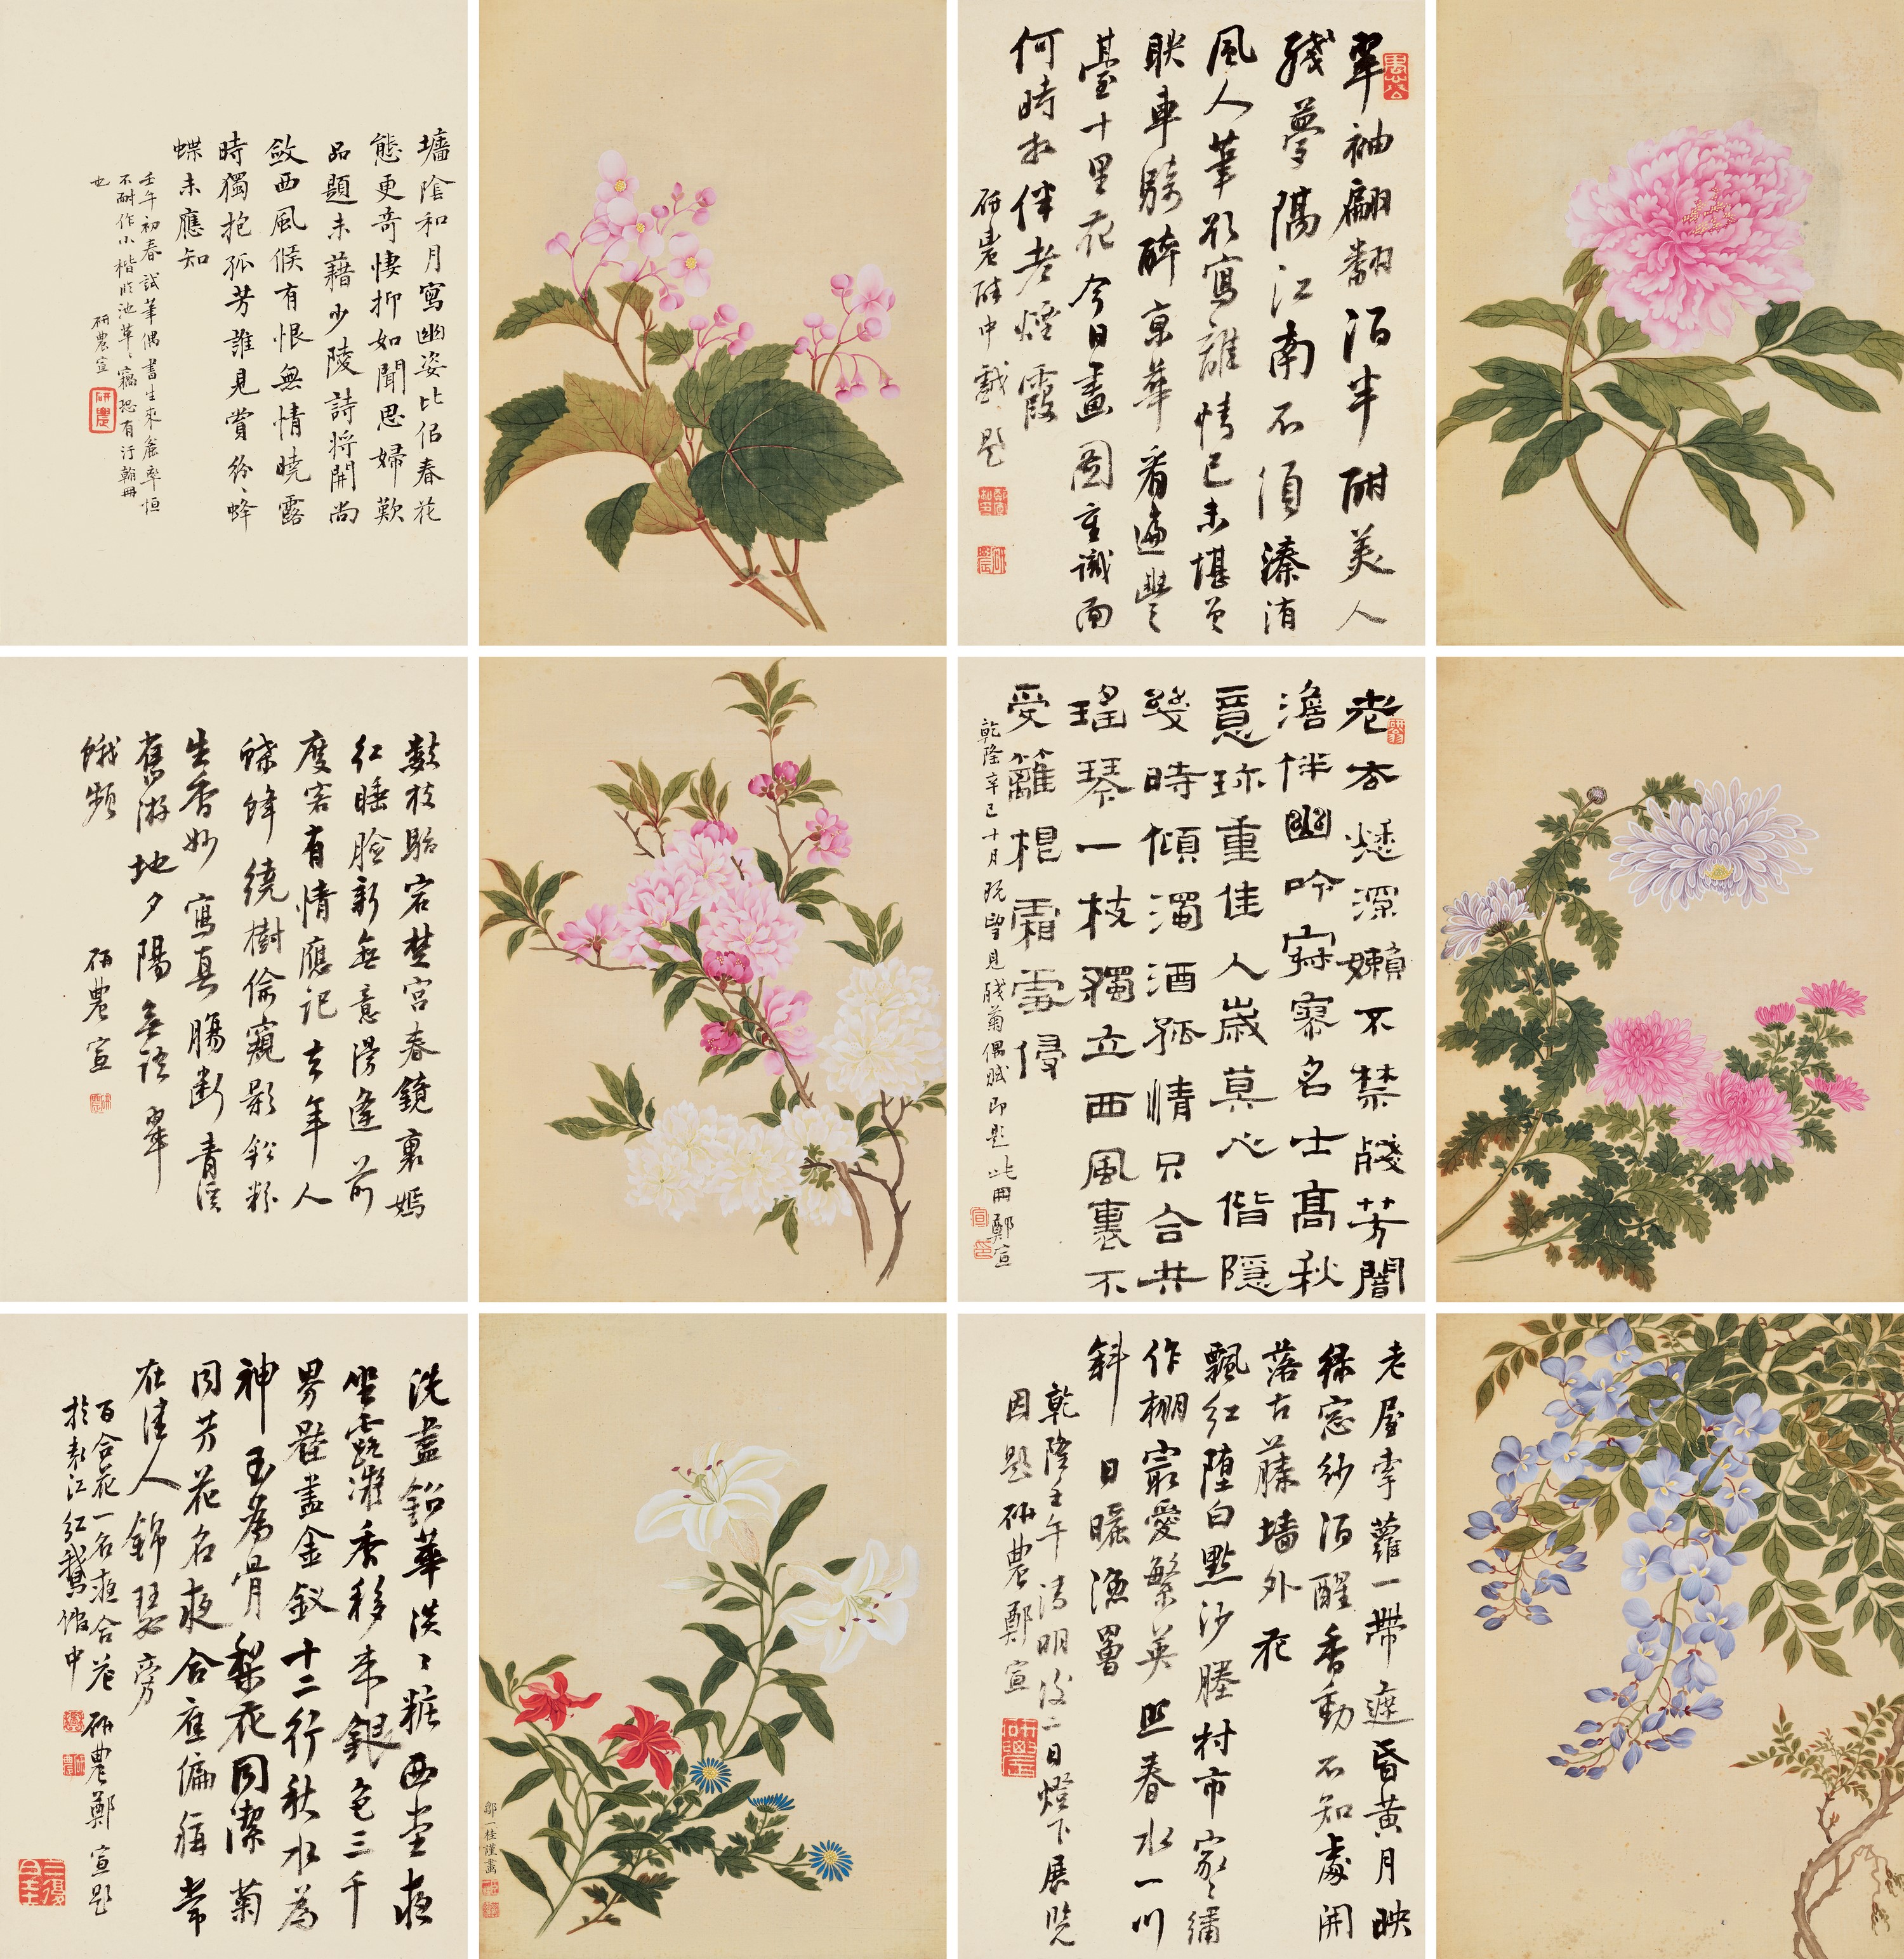 翠袖翩翻酒半酣美人
殘夢隔江南不須溱洧
風人筆欲寫離情已未堪曾
聯車騎醉京華看遍豐
臺十里花今日畫圖重識面
何時相伴老煙霞
醉中戲題
墻陰和月寫幽姿比侶春花
態更奇悽抑如聞思婦歎
品題未藉少陵詩將開尚
斂西風候有恨無情曉露
時獨抱孤芳誰見賞紛〻蜂
蝶未應知
壬午初春試筆偶書生來麤率恒
不耐作小楷臨池草〻竊恐有汙翰冊
也
研農宣
研農
老去愁深嬾不禁殘芳闇
澹伴幽吟寂寥名士高秋
意珍重佳人歲莫心偕隱
幾時傾濁酒孤情只合共
瑤琴一枝獨立西風裏不
受籬根霜雪侵
乾隆辛巳十月既望見殘菊偶賦即題此冊鄭宣
數枝駘宕楚宮春鏡裏嫣
紅睡臉新無意漫逢前
度客有情應記去年人
蝶蜂繞樹偷窺影鉛粉
生香妙寫真腸斷青溪
舊游地夕陽無語翠
蛾顰
研農宣
老屋牽蘿一帶遮昏黃月映
綠窗紗酒醒香動不知處開
落古藤墻外花
飄紅墮白點沙塍村市家〻繡
作棚最愛繁英照春水一川
斜日曬漁罾
乾隆壬午清明後二日燈下展覽
因題研農鄭宣
研農
鄒一桂謹畫
洗盡鉛華淡〻粧西堂夜
坐露凝香移來銀色三千
界歷盡金釵十二行秋水為
神玉為骨梨花同潔菊
同芳花名夜合應偏稱常
在佳人錦瑟旁
百合花一名夜合花研農鄭宣題
於袁江紅鵝館中